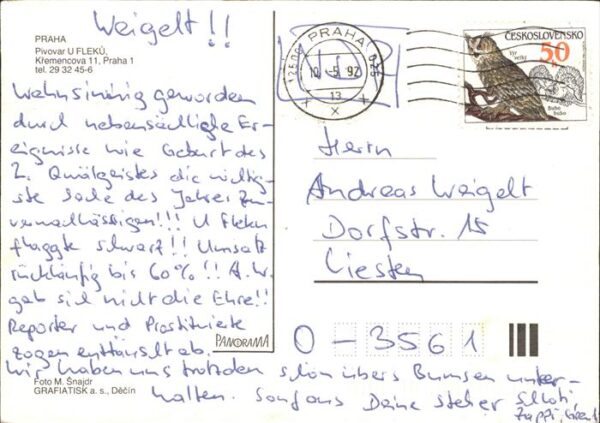 Weigelt!!
PRAHA
Pivovar U FLEKŮ,
Křemencova 11, Praha 1
tel. 29 32 45-6
Wahnsinnig geworden
durch nebensächliche Er-
eignisse wie Geburt des
2. Quälgeistes die wichtig-
ste Sache des Jahres zu
vernachlässigen!!! U Fleku
flaggte schwarz!! Umsatz
rückläufig bis 60%!! A.W.
gab sich nicht die Ehre!!
Reporter und Prostituierte
zogen enttäuscht ab.
Wir haben uns trotzdem schön übers Bumsen unter-
halten. Deine Steher Schoti,
Zappi,
PRAHA 025
10.-5.92
13
ČESKOSLOVENSKO
50
h
Výr
velký
Bubo
bubo
Herrn
Andreas Weigelt
Dorfstr. 15
Liesten
O-3561
PANORAMA
Foto M. Šnajdr
GRAFIATISK a. s., Děčín